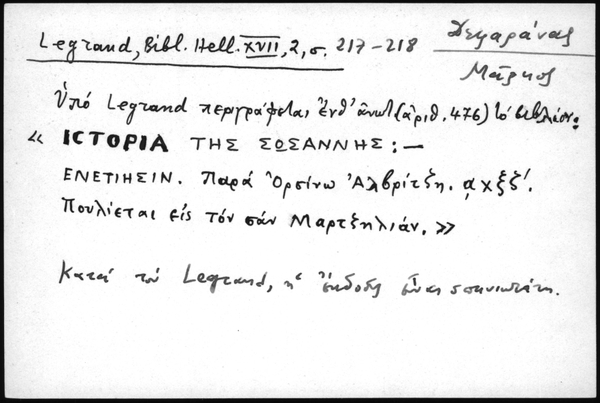 Legrand, Bibl. Hell. XVII, 2, σ. 217-218
Δεφαράνας
Μάρκος
Ὑπό Legrand περιγράφεται ἔνθ' ἄνωτ. (ἀριθ. 476) τό βιβλίον:
« ΙCΤΟΡΙΑ ΤΗΣ ΣΩΣΑΝΝΗΣ : —
ΕΝΕΤΙΗΣΙΝ. Παρά Ὀρσίνω Ἀλβρίτζη. αχξζ'.
Πουλίεται εἰς τόν σάν Μαρτζηλιάν. »
Κατά τόν Legrand, ἡ ἔκδοσις εἶναι σπανιωτάτη.